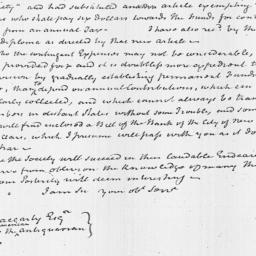 ety" and had substituted another article exempting
who shall pay six Dollars towards the Funds, for con
from an annual tax - I have also rec.d by the
diploma as directed by that new article -
the contingent Expences may not be considerable,
provided for; and it is doubtless more expedient to
by gradually establishing permanent Funds
to depend on annual contributions, which can
collected, and which cannot always be tran
in distant States without some Trouble, and some
will find inclosed a Bill of the Bank of the City of New
which I presume will pass with you as it do
the Society will succeed in their laudable Endeavo
from oblivion the knowledge of many Thi
Posterity will deem interesting -
I am Sir your ob.t Serv.t
Esq.r
antiquarian